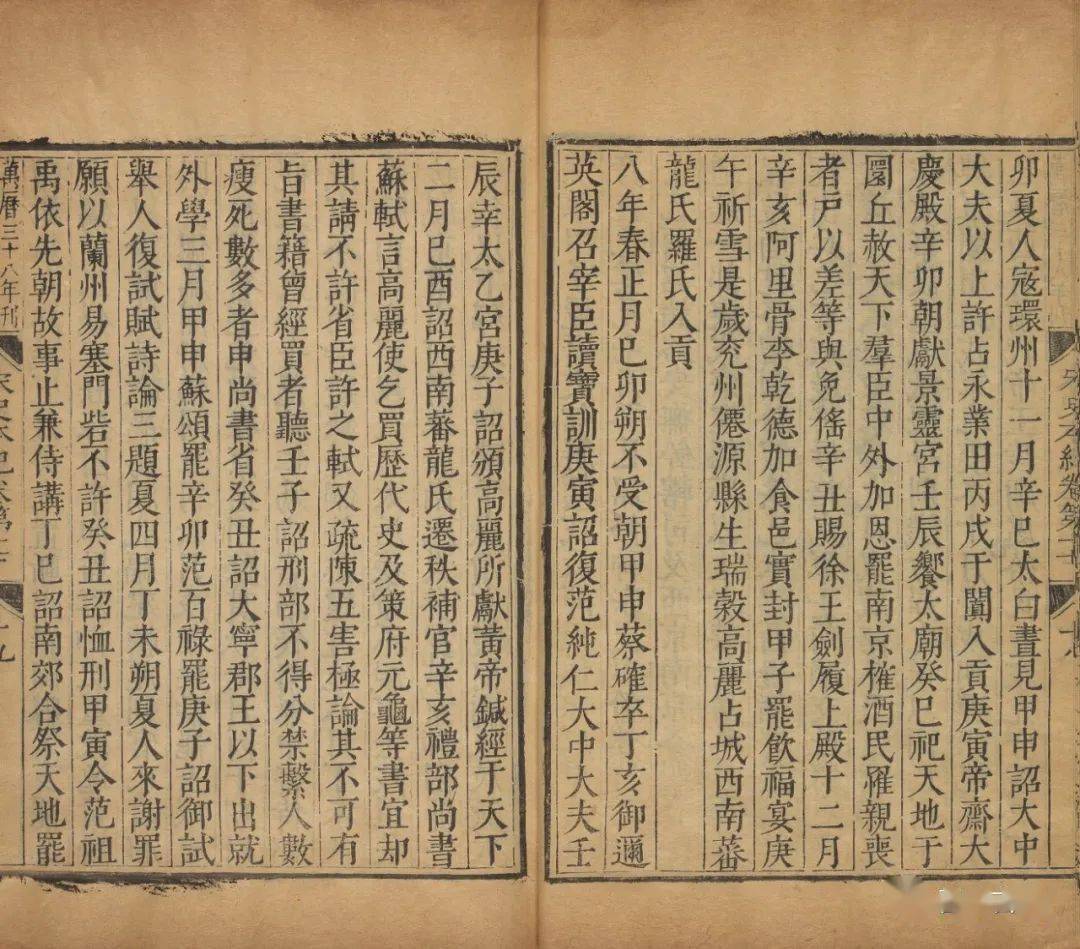 卯夏人寇環州十一月辛巳太白晝見甲申詔大中
大夫以上許占永業田丙戌于闐入貢庚寅帝齋大
慶殿辛卯朝獻景靈宮壬辰饗太廟癸巳祀天地于
圜丘赦天下羣臣中外加恩罷南京榷酒民罹親喪
者戸以差等與免徭辛丑賜徐王劒履上殿十二月
辛亥阿里骨李乾德加食邑實封甲子罷飲福宴庚
午祈雪是歲兖州僊源縣生瑞榖高麗占城西南蕃
龍氏羅氏入貢
八年春正月巳卯朔不受朝甲申蔡確卒丁亥御邇
英閣召宰臣讀寶訓庚寅詔復范純仁大中大夫壬
辰幸太乙宮庚子詔頒高麗所獻黃帝鍼經于天下
二月巳酉詔西南蕃龍氏遷秩補官辛亥禮部尚書
蘇軾言高麗使乞買歷代史及策府元龜等書宜却
其請不許省臣許之軾又疏陳五害極論其不可有
旨書籍曾經買者聽壬子詔刑部不得分禁繫人數
瘐死數多者申尚書省癸丑詔大寧郡王以下出就
外學三月甲申蘇頌罷辛卯范百祿罷庚子詔御試
舉人復試賦詩論三題夏四月丁未朔夏人來謝罪
願以蘭州易塞門砦不許癸丑詔恤刑甲寅令范祖
禹依先朝故事止兼侍講丁巳詔南郊合祭天地罷
萬曆三十八年刊